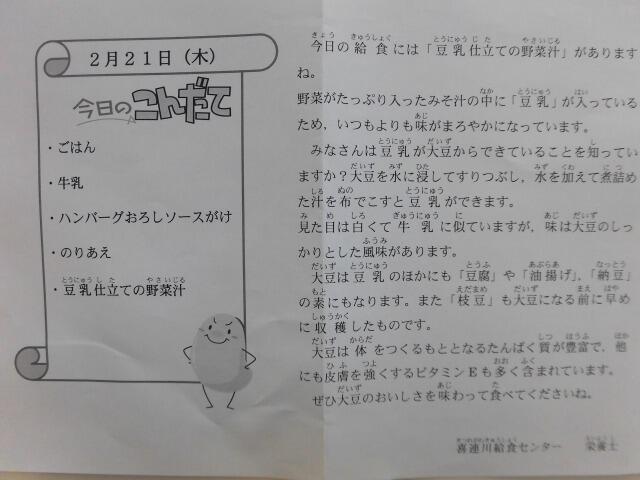 2月21日（木）
今日のこんだて
・ごはん
・牛乳
・ハンバーグおろしソースがけ
・のりあえ
・豆乳仕立ての野菜汁
今日の給食には「豆乳仕立ての野菜汁」があります
ね。
野菜がたっぷり入ったみそ汁の中に「豆乳」が入っている
ため，いつもよりも味がまろやかになっています。
みなさんは豆乳が大豆からできていることを知ってい
ますか？大豆を水に浸してすりつぶし，水を加えて煮詰め
た汁を布でこすと豆乳ができます。
見た目は白くて牛乳に似ていますが，味は大豆のしっ
かりとした風味があります。
大豆は豆乳のほかにも「豆腐」や「油揚げ」，「納豆」
の素にもなります。また「枝豆」も大豆になる前に早め
に収穫したものです。
大豆は体をつくるもととなるたんぱく質が豊富で，他
にも皮膚を強くするビタミンEも多く含まれています。
ぜひ大豆のおいしさを味わって食べてくださいね。
喜連川給食センター　栄養士